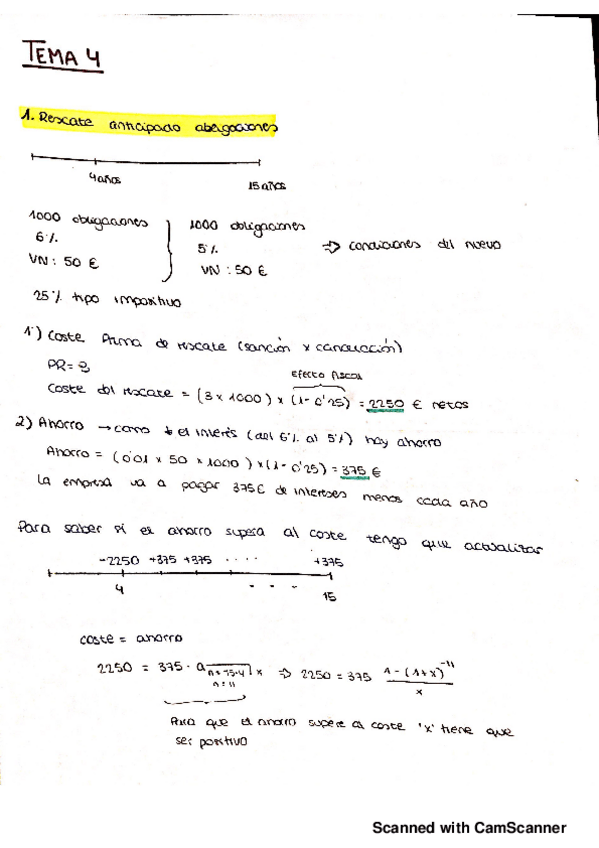 TEMA 4
1. Rescate anticipado obligaciones
4 años
15 años
1000 obligaciones
6%
VN: 50 €
1000 obligaciones
5%
VN: 50 €
⇒ condiciones del nuevo
25% tipo impositivo
1) Coste Prima de rescate (sanción x cancelación)
PR = 3
efecto fiscal
Coste del rescate = (3 x 1000) x (1 - 0'25) = 2250 € netos
2) Ahorro → como ↓ el interés (del 6% al 5%) hay ahorro
Ahorro = (0'01 x 50 x 1000) x (1 - 0'25) = 375 €
La empresa va a pagar 375€ de intereses menos cada año
Para saber si el ahorro supera al coste tengo que actualizar
-2250 +375 +375 .... +375
4
15
coste = ahorro
2250 = 375 · a n=15-4 n=11 x ⇒ 2250 = 375 1-(1+x)^-11 / x
Para que el ahorro supere al coste 'x' tiene que
ser positivo
Scanned with CamScanner